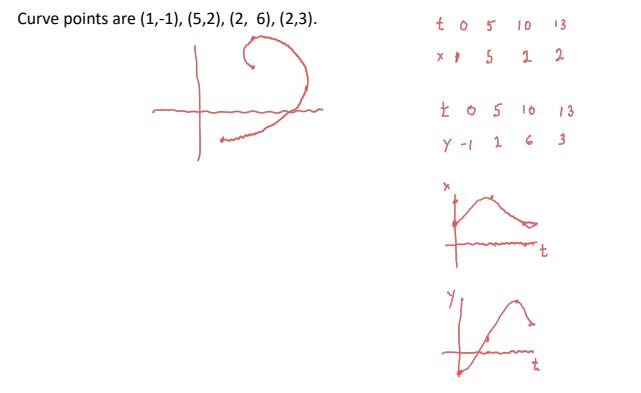 Curve points are (1,-1), (5,2), (2, 6), (2,3).
t 0 5 10 13
x 1 5 2 2
t 0 5 10 13
y -1 2 6 3
x
t
y
t